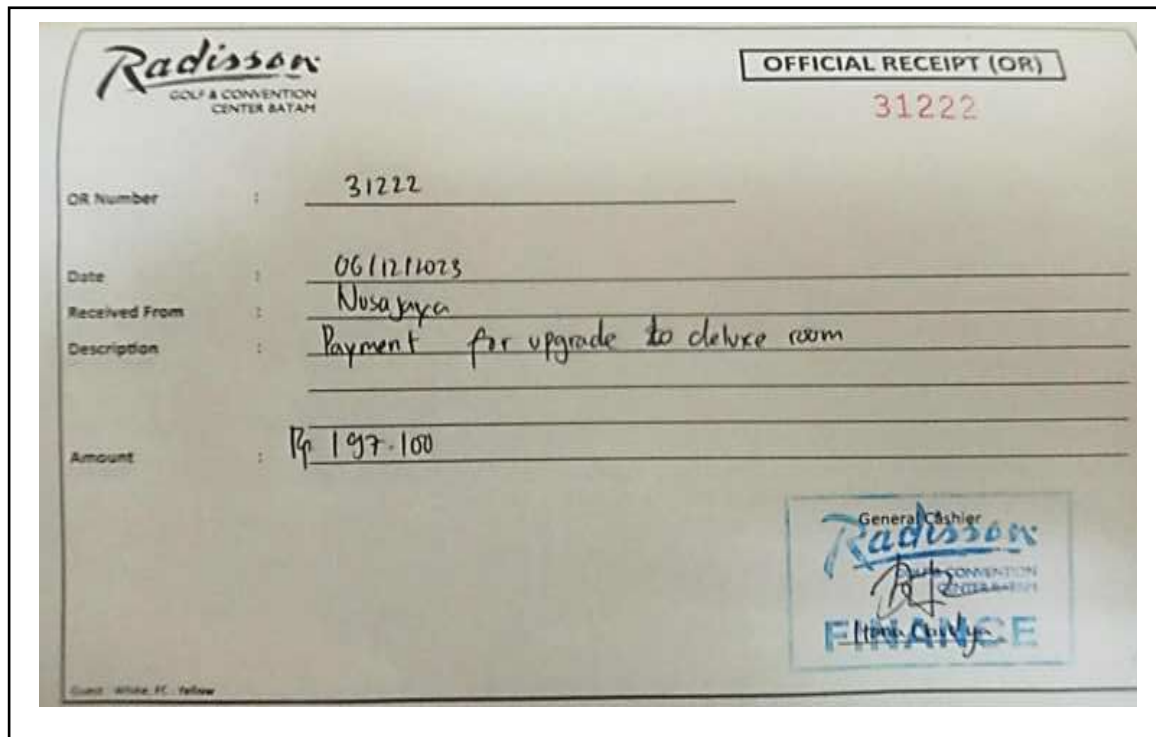 Radisson
GOLF & CONVENTION
CENTER BATAM
OFFICIAL RECEIPT (OR)
31222
OR Number : 31222
Date : 06/12/2023
Received From : Nusajaya
Description : Payment for upgrade to deluxe room
Amount : Rp 197.100
General Cashier
Radisson
GOLF & CONVENTION
CENTER BATAM
FINANCE
Guest : White, FC : Yellow